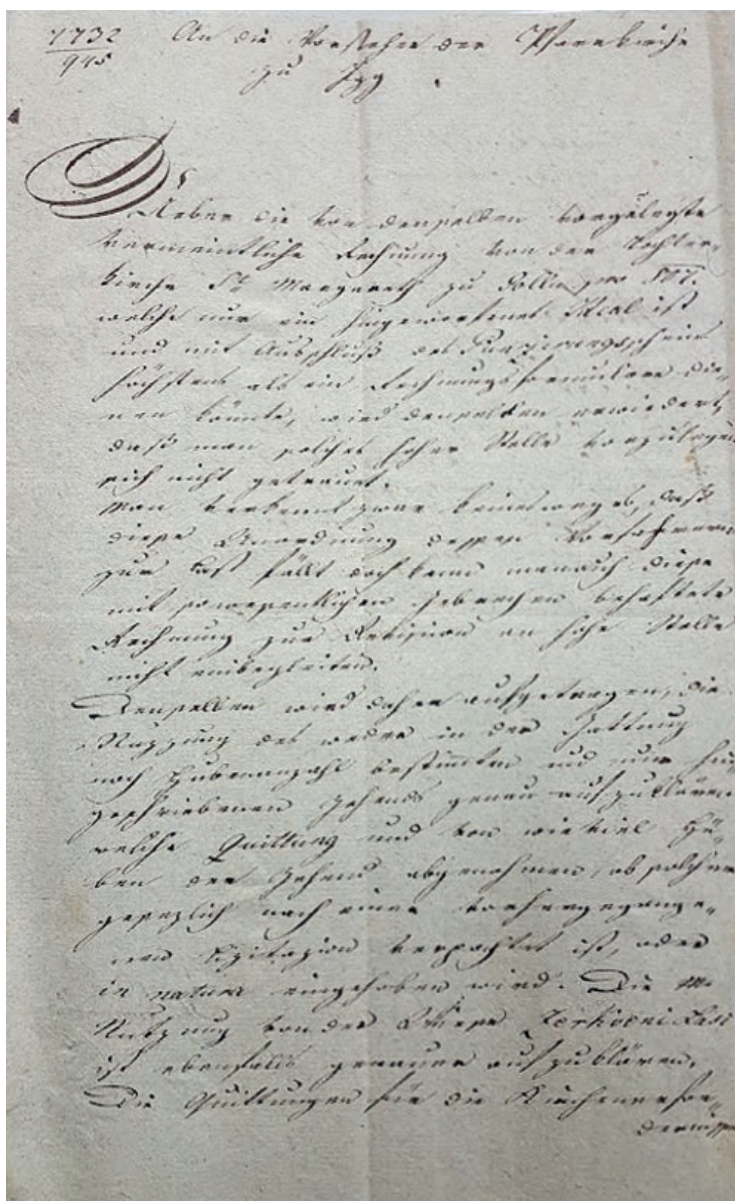 1732
945
An die Vorsteher der Pfarrkirche
zu Igg
Ueber die von denselben vorgelegte
vermeintliche Rechnung von der Tochter-
kirche St. Margareth zu Golln pro 807.
welche nur ein hingeworfenes ist
und mit Ausschluß des
höchstens als ein Rechnungsformulare die-
nen könnte, wird denselben erwiedert,
daß man solches hoher Stelle vorzulegen
sich nicht getrauet.
Man verkennt zwar keineswegs, daß
diese Unordnung dessen Vorfahrern
zur Last fällt doch kann man auch diese
mit so wesentlichen Gebrechen behaftete
Rechnung zur Revision an hohe Stelle
nicht einbegleiten.
Denselben wird daher aufgetragen, die
Nutzung des weder in der Gattung
noch Hubenanzahl bestimmten und nur hin
geschriebenen Zehends genau aufzuklären
welche Gattung und von wieviel Hu-
ben der Zehend abgenohmen, ob solcher
gesezlich nach einer vorhergegange-
nen Lizitazion verpachtet ist, oder
in natura eingehoben wird. Die
Nutzung von der Wiese
ist ebenfalls genauer aufzuklären.
Die Quittungen für die Kirchenerfor-
dernisse